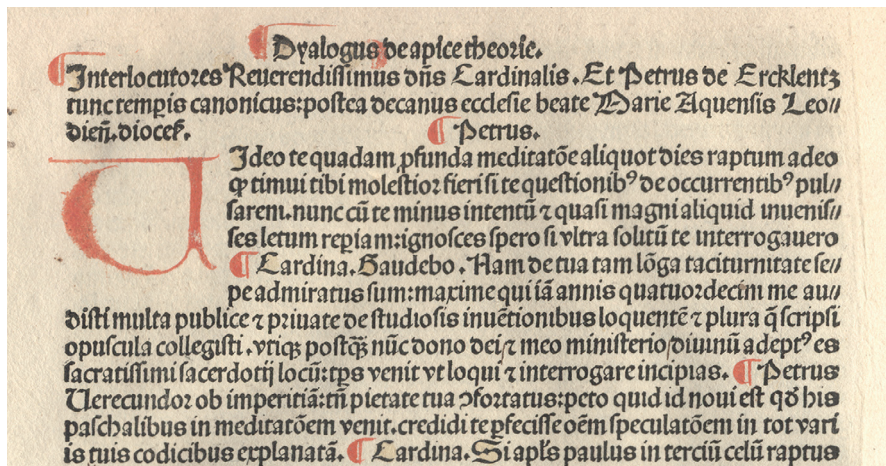 ¶ Dyalogus de apice theorie.
¶ Interlocutores Reuerendissimus dn̄s Cardinalis. Et Petrus de Ercklentz
tunc temp̲is canonicus: postea decanus ecclesie beate Marie Aquensis Leo//
dieñ. dioceẜ. ¶ Petrus.
UIdeo te quadam ꝓfunda meditatōe aliquot dies raptum adeo
ꝙ timui tibi molestior fieri si te questionibꝰ de occurrentibꝰ pul//
sarem. nunc cū te minus intentū ⁊ quasi magni aliquid inuenis//
ses letum rep̲iam: ignosces spero si vltra solitū te interrogauero
¶ Cardina. Gaudebo. Nam de tua tam lōga taciturnitate se//
pe admiratus sum: maxime qui iā annis quatuordecim me au//
disti multa publice ⁊ priuate de studiosis inuētionibus loquentē ⁊ plura q̄ scripsi
opuscula collegisti. vtiqꝫ postq̄ꝫ nūc dono dei ⁊ meo ministerio diuinū adeptꝰ es
sacratissimi sacerdotij locū: tp̄s venit vt loqui ⁊ interrogare incipias. ¶ Petrus
Uerecundor ob imperitiā: tn̄ pietate tua ↄfortatus: peto quid id noui est qđ his
paschalibus in meditatōem venit. credidi te p̲fecisse oēm speculatōem in tot vari
is tuis codicibus explanatā. ¶ Cardina. Si apl̄s paulus in terciū celū raptus